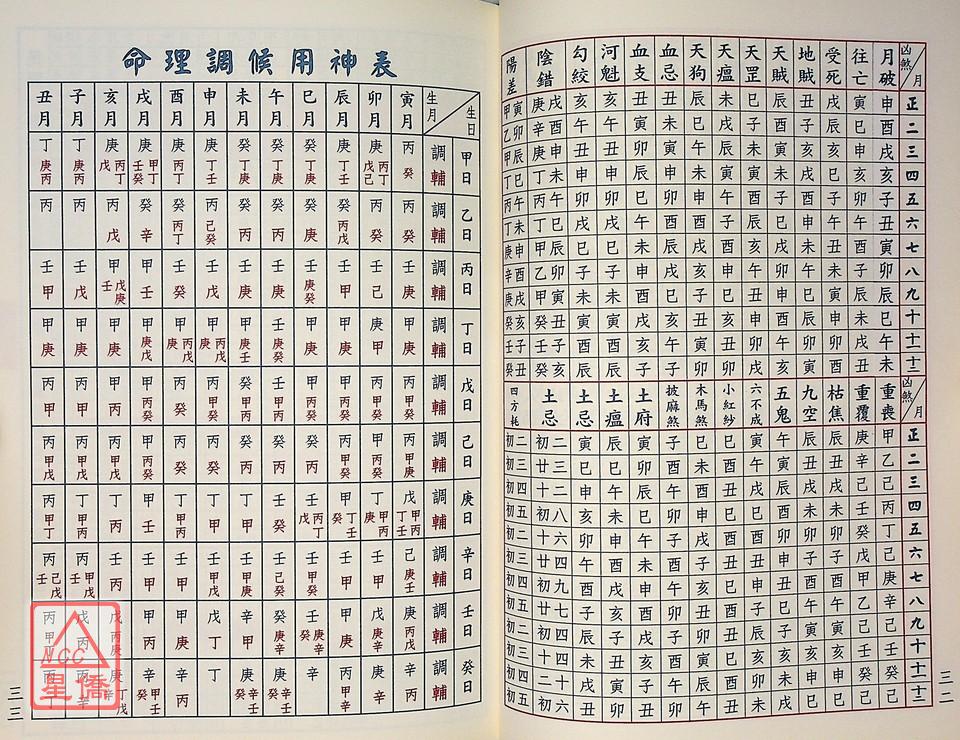 凶煞 月 月破 往亡 受死 地賊 天賊 天罡 天瘟 天狗 血忌 血支 河魁 勾絞 陰錯 陽差
正 申 寅 戌 丑 辰 巳 未 辰 丑 丑 亥 亥 庚戌 甲寅
二 酉 巳 辰 子 酉 子 戌 巳 未 寅 午 午 辛酉 乙卯
三 戌 申 亥 亥 寅 未 辰 午 寅 卯 丑 丑 庚申 甲辰
四 亥 亥 巳 戌 未 寅 寅 未 申 辰 申 申 丁未 丁巳
五 子 卯 子 酉 子 酉 午 申 卯 巳 卯 卯 丙午 丙午
六 丑 午 午 申 巳 辰 子 酉 酉 午 戌 戌 丁巳 丁未
七 寅 酉 丑 未 戌 亥 酉 戌 辰 未 巳 巳 甲辰 庚申
八 卯 子 未 午 卯 午 申 亥 戌 申 子 子 乙卯 辛酉
九 辰 辰 寅 巳 申 丑 巳 子 巳 酉 未 未 甲寅 庚戌
十 巳 未 申 辰 酉 申 亥 丑 亥 戌 寅 寅 癸丑 癸亥
十一 午 戌 卯 卯 午 卯 丑 寅 午 亥 酉 酉 壬子 壬子
十二 未 丑 酉 寅 亥 戌 卯 卯 子 子 辰 辰 癸亥 癸丑
凶煞 月 重喪 重覆 枯焦 九空 五鬼 六不成 小紅紗 木馬煞 披麻煞 土府 土瘟 土忌 土忌 四方耗
正 甲 庚 辰 辰 午 寅 巳 巳 子 寅 辰 寅 初二 初二
二 乙 辛 丑 丑 寅 午 酉 未 酉 卯 巳 巳 廿三 初三
三 己 己 戌 戌 辰 戌 丑 酉 午 辰 午 申 十二 初四
四 丙 壬 未 未 酉 巳 巳 申 卯 巳 未 亥 初八 初五
五 丁 癸 卯 卯 卯 酉 酉 戌 子 午 申 卯 十六 初二
六 己 戌 子 子 申 丑 丑 子 酉 未 酉 午 廿四 初三
七 庚 甲 酉 酉 丑 申 巳 亥 午 申 戌 酉 初九 初四
八 辛 乙 午 午 巳 子 酉 丑 卯 酉 亥 子 廿七 初五
九 己 己 寅 寅 子 辰 丑 卯 子 戌 子 辰 初四 初二
十 壬 壬 亥 亥 亥 亥 巳 寅 酉 亥 丑 未 十四 初三
十一 癸 癸 申 申 未 卯 酉 辰 午 子 寅 戌 二十 初四
十二 己 己 巳 巳 戌 未 丑 午 卯 丑 卯 丑 初六 初五
三二
命理調候用神表
生日 生月 寅月 卯月 辰月 巳月 午月 未月 申月 酉月 戌月 亥月 子月 丑月
甲日 調 丙 庚 庚 癸 癸 癸 庚 庚 庚 庚 丁 丁
輔 癸 丙丁戊己 丁壬 丁庚 丁庚 丁庚 丁壬 丙丁 甲丁壬癸 丙丁戊 庚丙 庚丙
乙日 調 丙 丙 癸 癸 癸 癸 丙 癸 癸 丙 丙 丙
輔 癸 癸 丙戊 庚 丙 丙 己癸 丙丁 辛 戊
丙日 調 壬 壬 壬 壬 壬 壬 壬 壬 甲 甲 壬 壬
輔 庚 己 甲 庚癸 庚 庚 戊 癸 壬 戊庚壬 戊 甲
丁日 調 甲 庚 甲 甲 壬 甲 甲 甲 甲 甲 甲 甲
輔 庚 甲 庚 庚 庚癸 庚壬 丙戊庚 丙戊庚 庚戊 庚 庚 庚
戊日 調 丙 丙 甲 甲 壬 癸 丙 丙 甲 甲 丙 丙
輔 甲癸 甲癸 丙癸 丙癸 甲丙 甲丙 甲癸 癸 丙癸 丙 甲 甲
己日 調 丙 甲 丙 癸 癸 癸 丙 丙 甲 丙 丙 丙
輔 甲庚 丙癸 甲癸 丙 丙 丙 癸 癸 丙癸 甲戊 甲戊 甲戊
庚日 調 戊 丁 甲 壬 壬 丁 丁 丁 甲 丁 丁 丙
輔 甲丙丁壬 甲丙庚 丁壬癸 丙丁戊 癸 甲 甲 甲丙 壬 丙 甲丙 甲丁
辛日 調 己 壬 壬 壬 壬 壬 壬 壬 壬 壬 丙 丙
輔 庚壬 甲 甲 甲癸 己癸 甲庚 甲戊 甲 甲 丙 甲戊壬 己戊壬
壬日 調 庚 戊 甲 壬 癸 辛 戊 甲 甲 戊 戊 丙
輔 丙戊 庚辛 庚 庚辛癸 庚辛 甲 丁 庚 丙 丙庚 丙 甲
癸日 調 辛 庚 丙 辛 庚 庚 丁 辛 辛 庚 丙 丙
輔 丙 辛 甲辛 辛壬癸 辛壬癸 丙 甲壬癸 丁戊辛 辛
三三
NCC
星僑